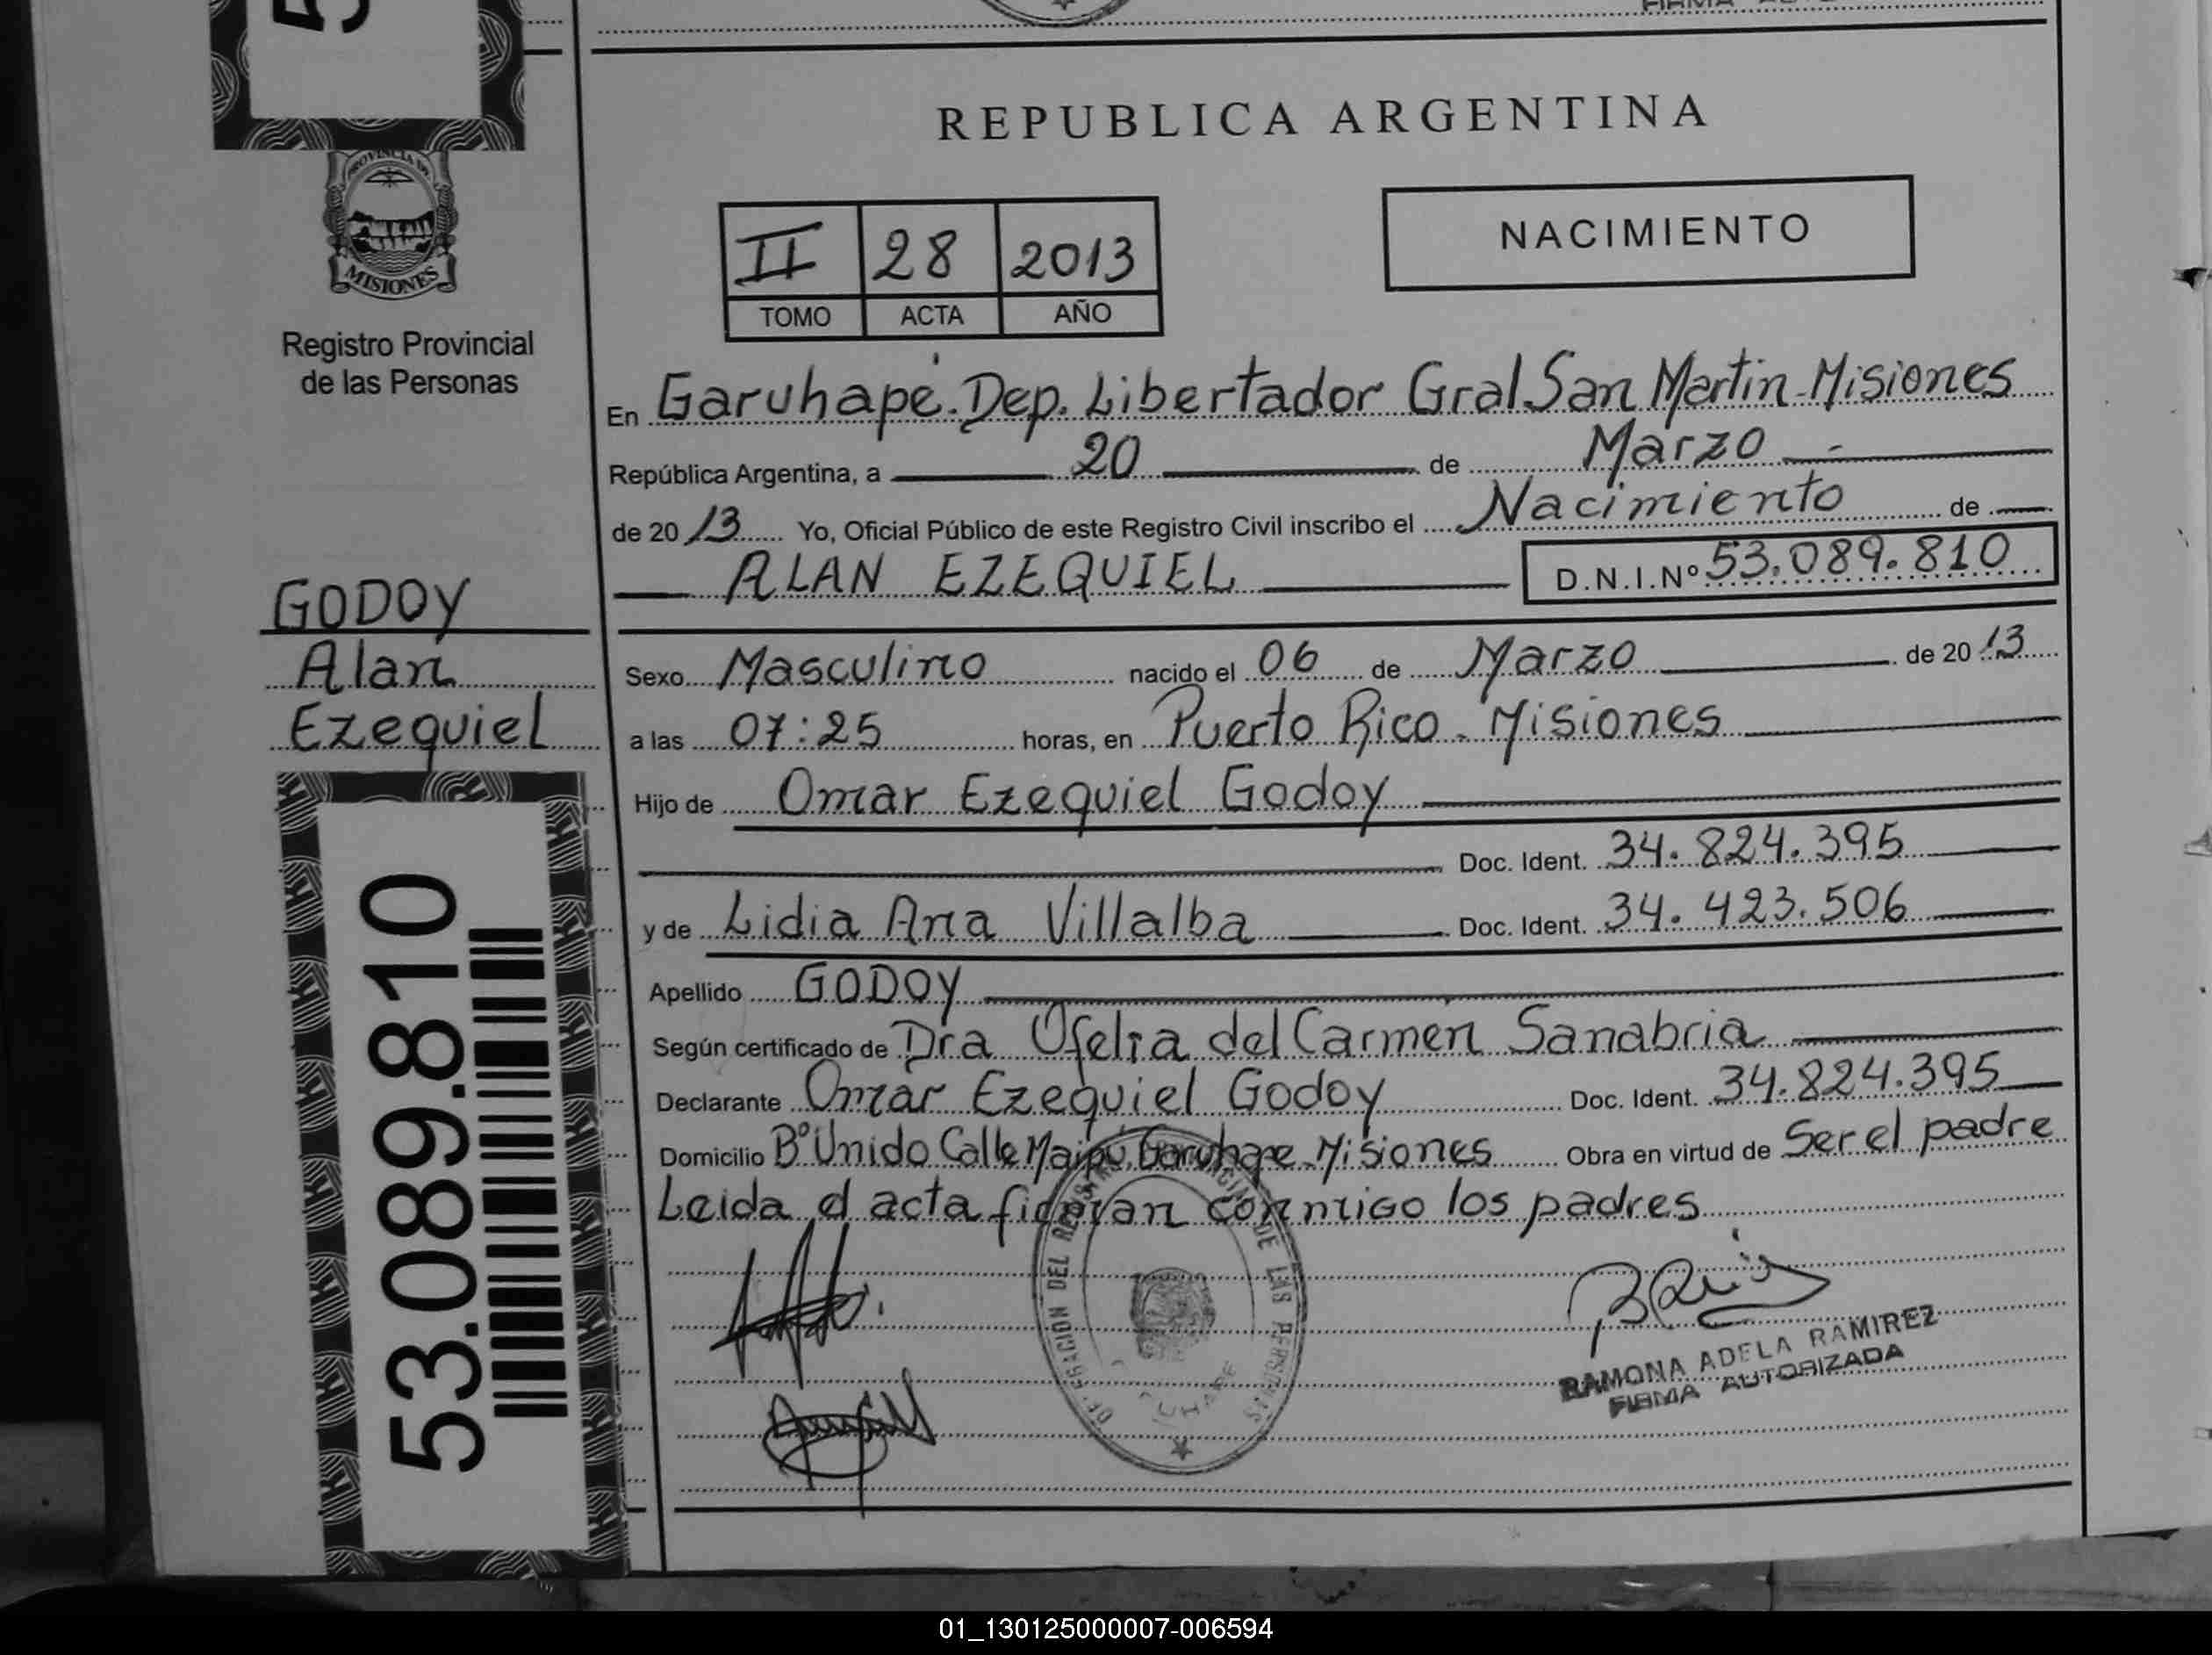 REPUBLICA ARGENTINA
PROVINCIA DE
MISIONES
Registro Provincial
de las Personas
NACIMIENTO
II 28 2013
TOMO ACTA AÑO
En Garuhapé. Dep. Libertador Gral San Martin - Misiones
República Argentina, a 20 de Marzo
de 2013 Yo, Oficial Público de este Registro Civil inscribo el Nacimiento de
ALAN EZEQUIEL D.N.I.Nº 53.089.810
GODOY
Alan
Ezequiel
Sexo Masculino nacido el 06 de Marzo de 2013
a las 07:25 horas, en Puerto Rico - Misiones
Hijo de Omar Ezequiel Godoy
Doc. Ident. 34.824.395
y de Lidia Ana Villalba Doc. Ident. 34.423.506
Apellido GODOY
Según certificado de Dra Ofelia del Carmen Sanabria
Declarante Omar Ezequiel Godoy Doc. Ident. 34.824.395
Domicilio Bº Unido Calle Maipú, Garuhape - Misiones Obra en virtud de Ser el padre
Leida el acta firman conmigo los padres
53.089.810
DELEGACION DEL REGISTRO PROVINCIAL DE LAS PERSONAS
RAMONA ADELA RAMIREZ
FIRMA AUTORIZADA
01_130125000007-006594